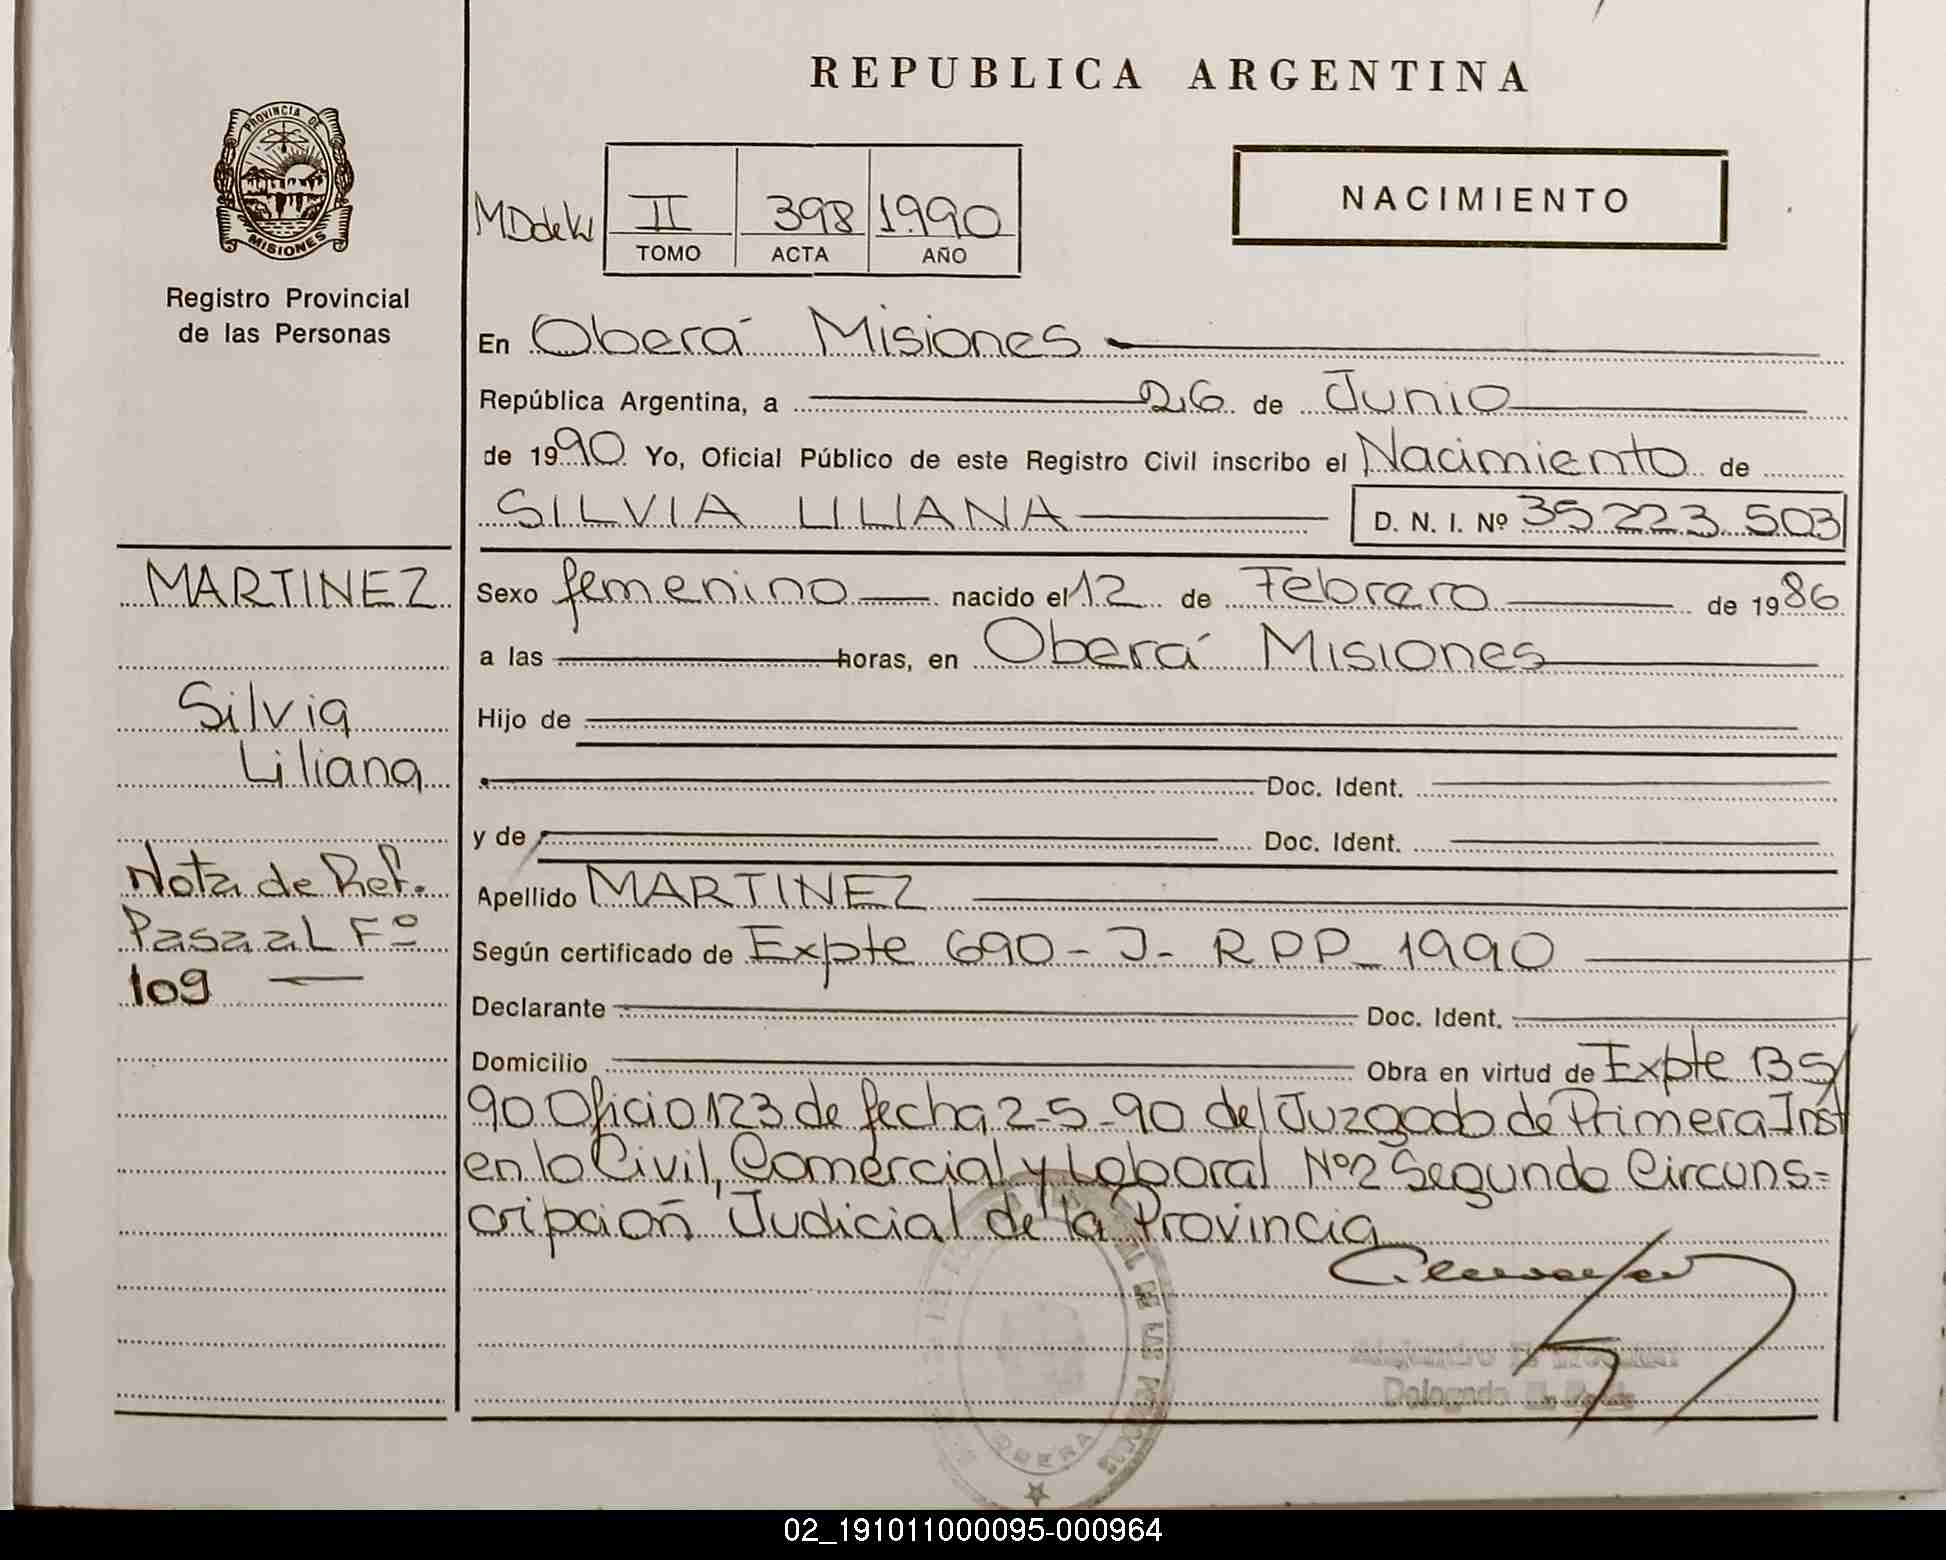 REPUBLICA ARGENTINA
PROVINCIA DE
MISIONES
Registro Provincial
de las Personas
II 398 1990
TOMO ACTA AÑO
NACIMIENTO
En Oberá Misiones
República Argentina, a 26 de Junio
de 1990 Yo, Oficial Público de este Registro Civil inscribo el Nacimiento de
SILVIA LILIANA D. N. I. Nº 35.223.503
MARTINEZ
Silvia
Liliana
Nota de Ref.
Pasa al Fº
109
Sexo femenino nacido el 12 de Febrero de 1986
a las horas, en Oberá Misiones
Hijo de
Doc. Ident.
y de Doc. Ident.
Apellido MARTINEZ
Según certificado de Expte 690-J-RPP-1990
Declarante Doc. Ident.
Domicilio Obra en virtud de Expte 135/
90 Oficio 123 de fecha 2-5-90 del Juzgado de Primera Inst
en lo Civil, Comercial y Laboral Nº2 Segunda Circuns=
cripción Judicial de la Provincia
OBERA
02_191011000095-000964